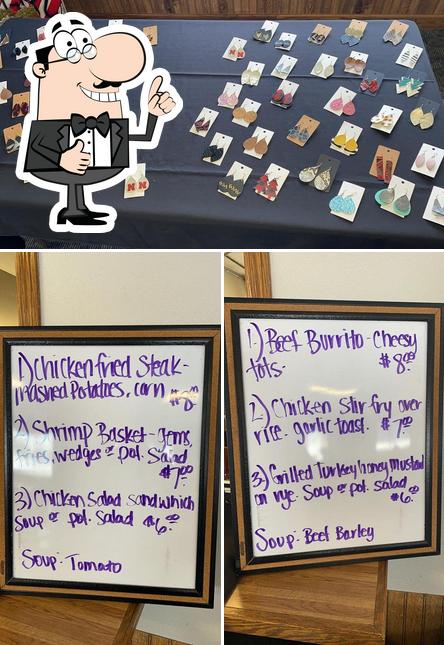 1) Chicken fried Steak-
mashed Potatoes, corn $8.00
2) Shrimp Basket - gems,
fries, wedges or pot. Salad
$7.00
3) Chicken Salad sandwhich
Soup or pot. Salad $6.00
Soup: Tomato
1.) Beef Burrito - Cheesy
tots. $8.00
2.) Chicken Stir-fry over
rice. garlic toast. $7.00
3.) Grilled Turkey honey mustard
on rye. Soup or pot. salad
$6.00
Soup: Beef Barley